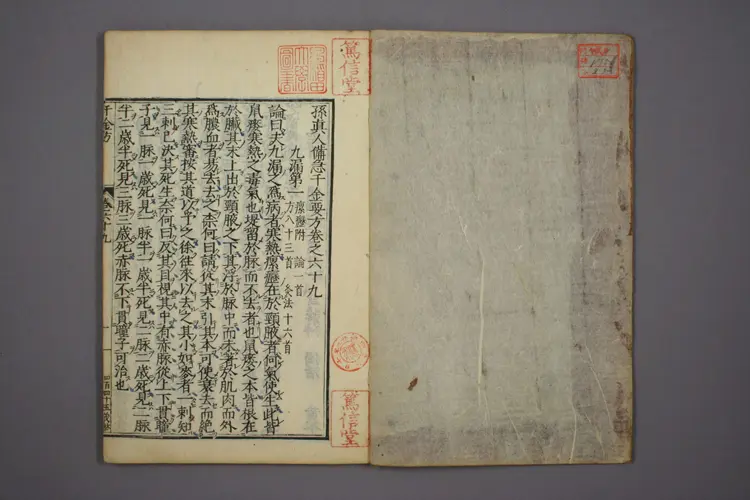 篤信堂
孫真人備急千金要方卷之六十九
九漏第一 瘰癧附 論一首
方八十三首 灸法十六首
論曰夫九漏之為病者寒熱瘰癧在於頸腋者何氣使生此皆
鼠瘻寒熱之毒氣也堤留於脉而不去者也鼠瘻之本皆根在
於臟其末上出於頸腋之下其浮於脉中而未著於肌肉而外
為膿血者易去去之柰何曰請從其末引其本可使衰去而絶
其寒熱審按其道以予之徐往來以去之其小如麥者一刺知
三刺已決其死生柰何曰反其目視其中有赤脉從上下貫瞳
子見一脉一歳死見一脉半一歳半死見二脉二歳死見二脉
半二歳半死見三脉三歳死赤脉不下貫瞳子可治也
千金方
卷六十九
篤信堂